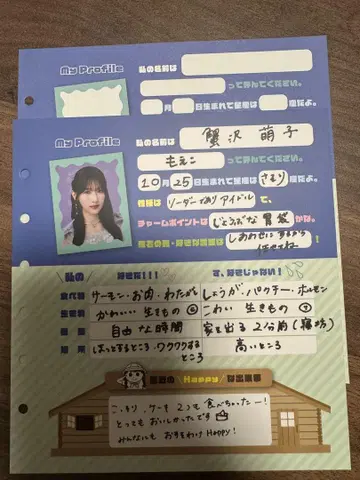 My Profile
私の名前は
って呼んでください。
月 日生まれで星座は 座だよ。
My Profile
私の名前は 蟹沢 萌子
もえこ って呼んでください。
10月25日生まれで星座はさそり座だよ。
性格は リーダー であり アイドル で
チャームポイントは じょうぶな胃袋 かな。
しあわせにするから
任せてね !
私の 好きな!!! す、好きじゃない!
食べ物 サーモン・お肉・わたがし しょうが・パクチー・ホルモン
生き物 かわいい 生きもの こわい 生きもの
時間 自由な時間 家を出る2分前(寝坊)
場所 ほっとするところ・ワクワクする
ところ 高いところ
最近の Happy な出来事
こっそり、ケーキ 2つも食べちゃったー!
とってもおいしかったです
みんなにもおすそわけHappy!